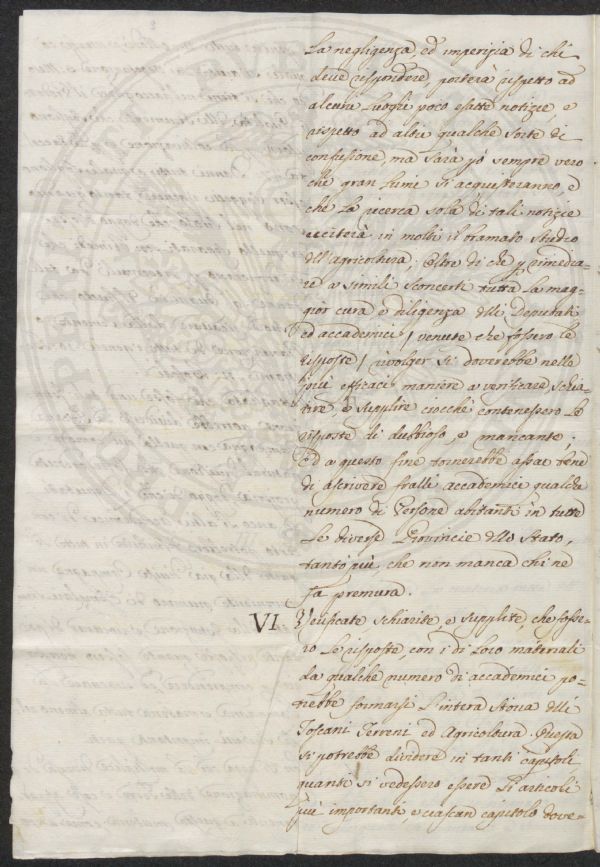 La negligenza, ed imperizia di chi
deve rispondere porterà rispetto ad
alcuni Luoghi poco esatte notizie, e
rispetto ad altri qualche sorte di
confusione, ma sarà pò sempre vero
che gran Lumi si acquisteranno, e
che La ricerca sola di tali notizie
ecciterà in molti il bramato studio
dll'Agricoltura; Oltre di che p rimedia-
re a simili sconcerti tutta La mag-
gior cura e diligenza dlli Deputati
ed accademici / venute che fossero le
risposte / rivolger si doverebbe nelle
più efficaci maniere a verificare schia-
rire e supplire ciocchè contenessero Le
risposte di dubbioso, e mancante;
Ed a questo fine tornerebbe assai bene
di ascrivere fralli accademici qualche
numero di Persone abitanti in tutte
Le diverse Provincie dllo Stato,
tanto più, che non manca chi ne
fa premura.
VI. Verificate schiarite, e supplite, che fosse-
ro Le risposte, con i di Loro materiali
da qualche numero di accademici po-
trebbe formarsi L'intera Storia dlli
Toscani Terreni ed Agricoltura. Questa
si potrebbe dividere in tanti Capitoli
quanti si vedessero essere Li articoli
più importanti e ciascun capitolo dove-